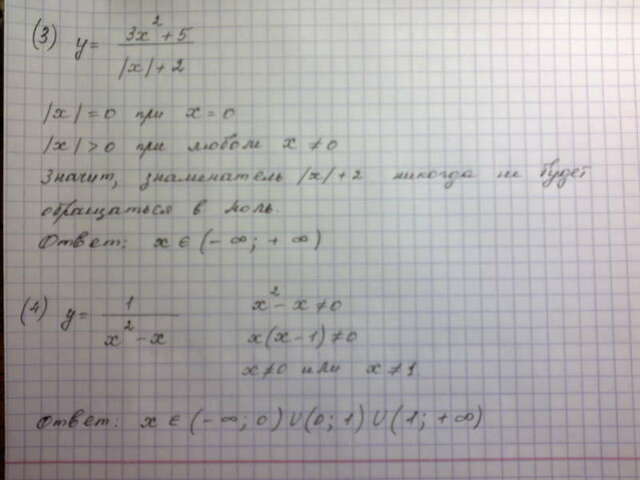 (3) y = (3x² + 5) / (|x| + 2)
|x| = 0 при x = 0
|x| > 0 при любом x ≠ 0
Значит, знаменатель |x| + 2 никогда не будет
обращаться в ноль.
Ответ: x ∈ (- ∞; + ∞)
(4) y = 1 / (x² - x)
x² - x ≠ 0
x(x - 1) ≠ 0
x ≠ 0 или x ≠ 1
Ответ: x ∈ (- ∞; 0) ∪ (0; 1) ∪ (1; + ∞)